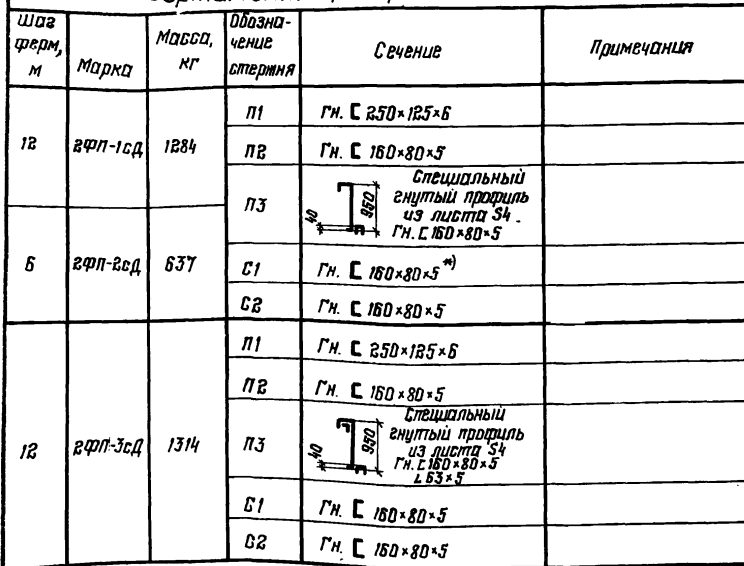 Шаг ферм, м
Марка
Масса, кг
Обозна-
чение
стержня
Сечение
Примечания
12
2ФП-1сД
1284
П1
Гн. [ 250×125×6
П2
Гн. [ 160×80×5
П3
40
950
Специальный
гнутый профиль
из листа S4.
Гн. [ 160×80×5
6
2ФП-2сД
637
С1
Гн. [ 160×80×5 *)
С2
Гн. [ 160×80×5
12
2ФП-3сД
1314
П1
Гн. [ 250×125×6
П2
Гн. [ 160×80×5
П3
40
950
Специальный
гнутый профиль
из листа S4
Гн. [ 160×80×5
L 63×5
С1
Гн. [ 160×80×5
С2
Гн. [ 160×80×5